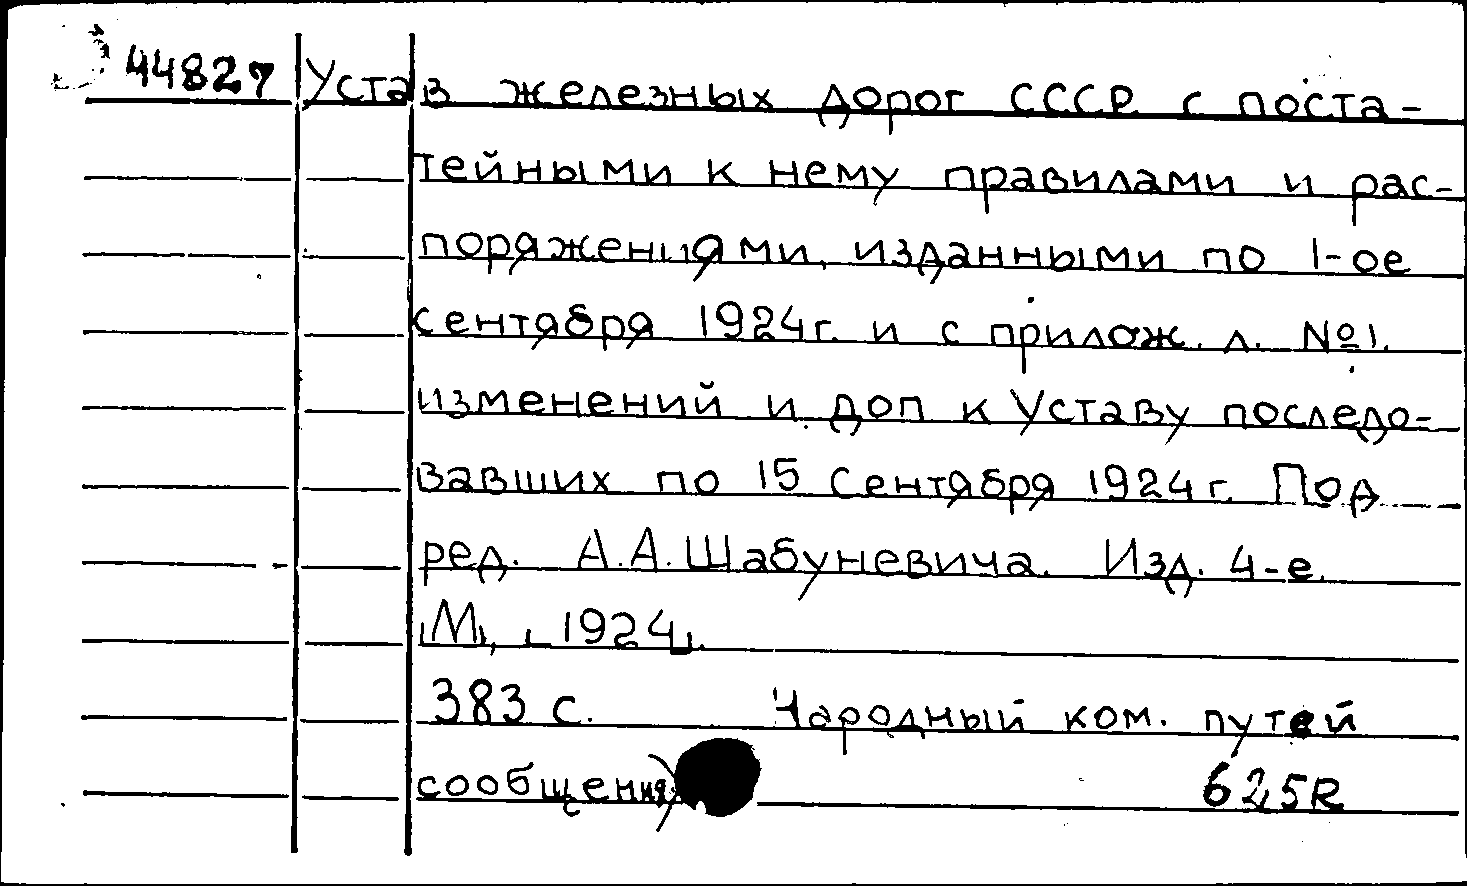 44827 Устав железных дорог СССР с поста-
тейными к нему правилами и рас-
поряжениями, изданными по 1-ое
сентября 1924г. и с прилож. л. №1.
изменений и доп к Уставу последо-
вавших по 15 Сентября 1924г. Под
ред. А.А. Шабуневича. Изд. 4-е.
М, 1924.
383 с. Народный ком. путей
сообщения)
625R